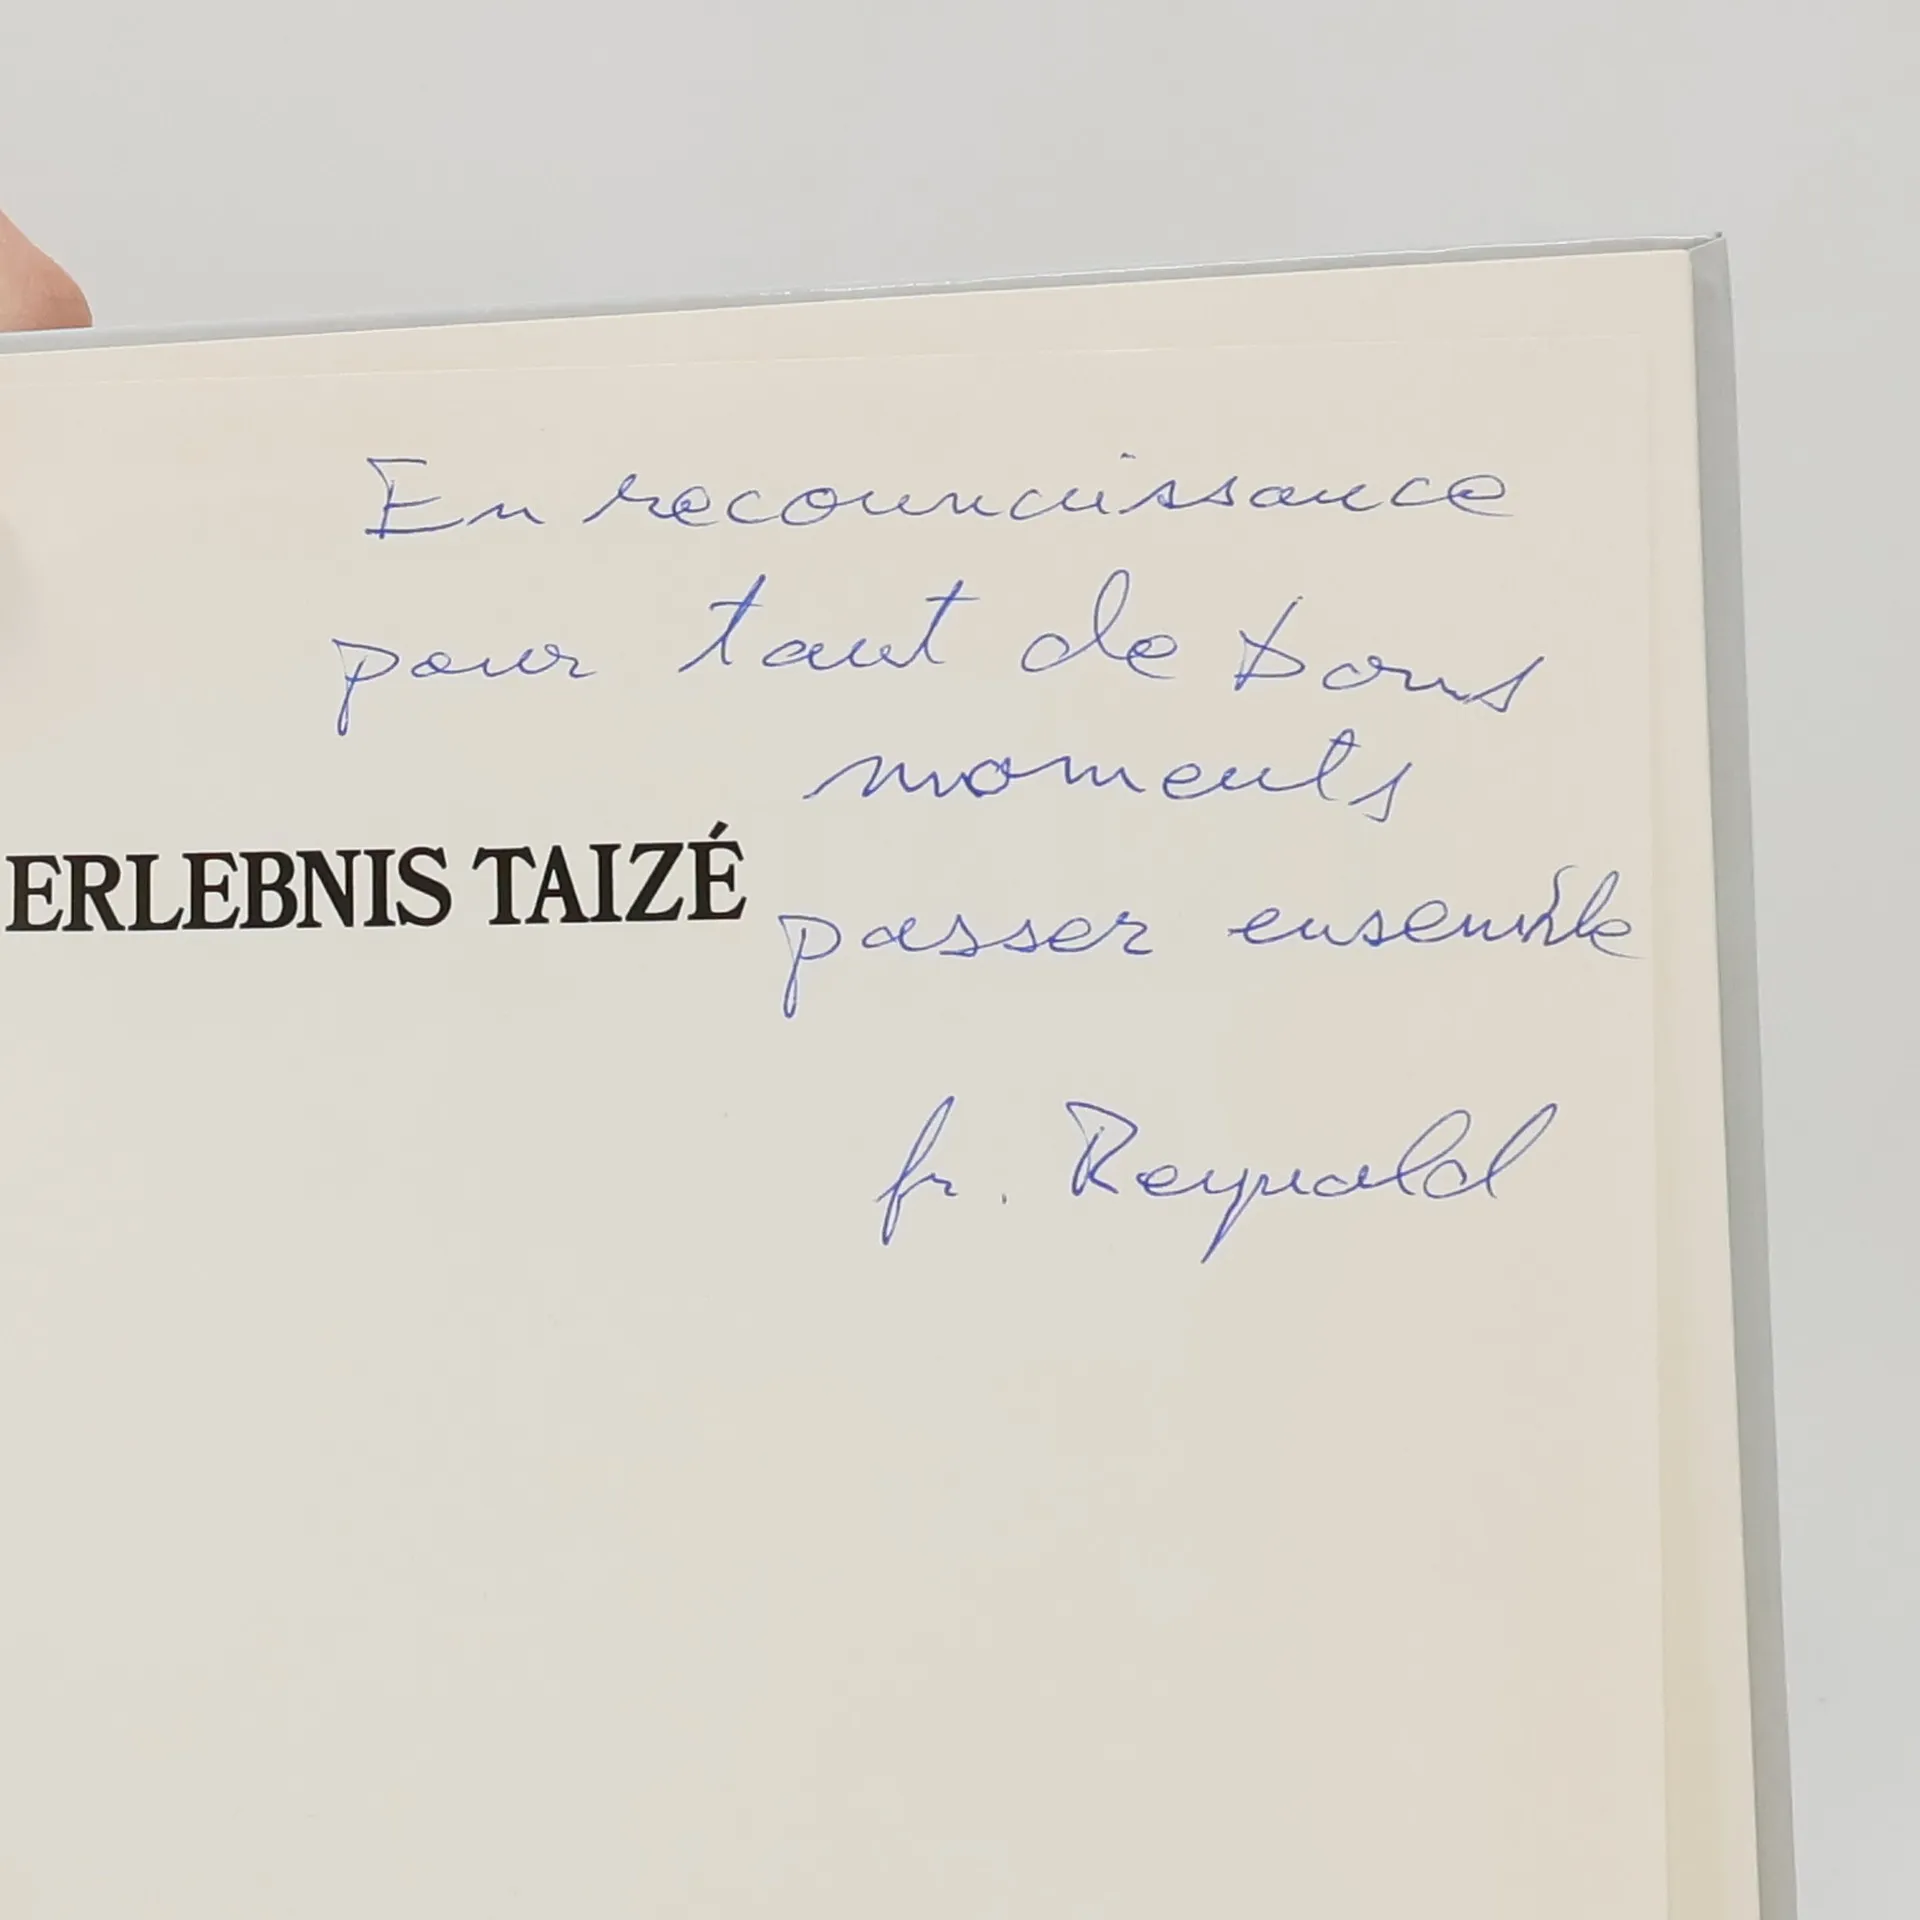 En reconnaissance
pour tant de bons
moments
ERLEBNIS TAIZÉ
passer ensemble
fr. Reynald